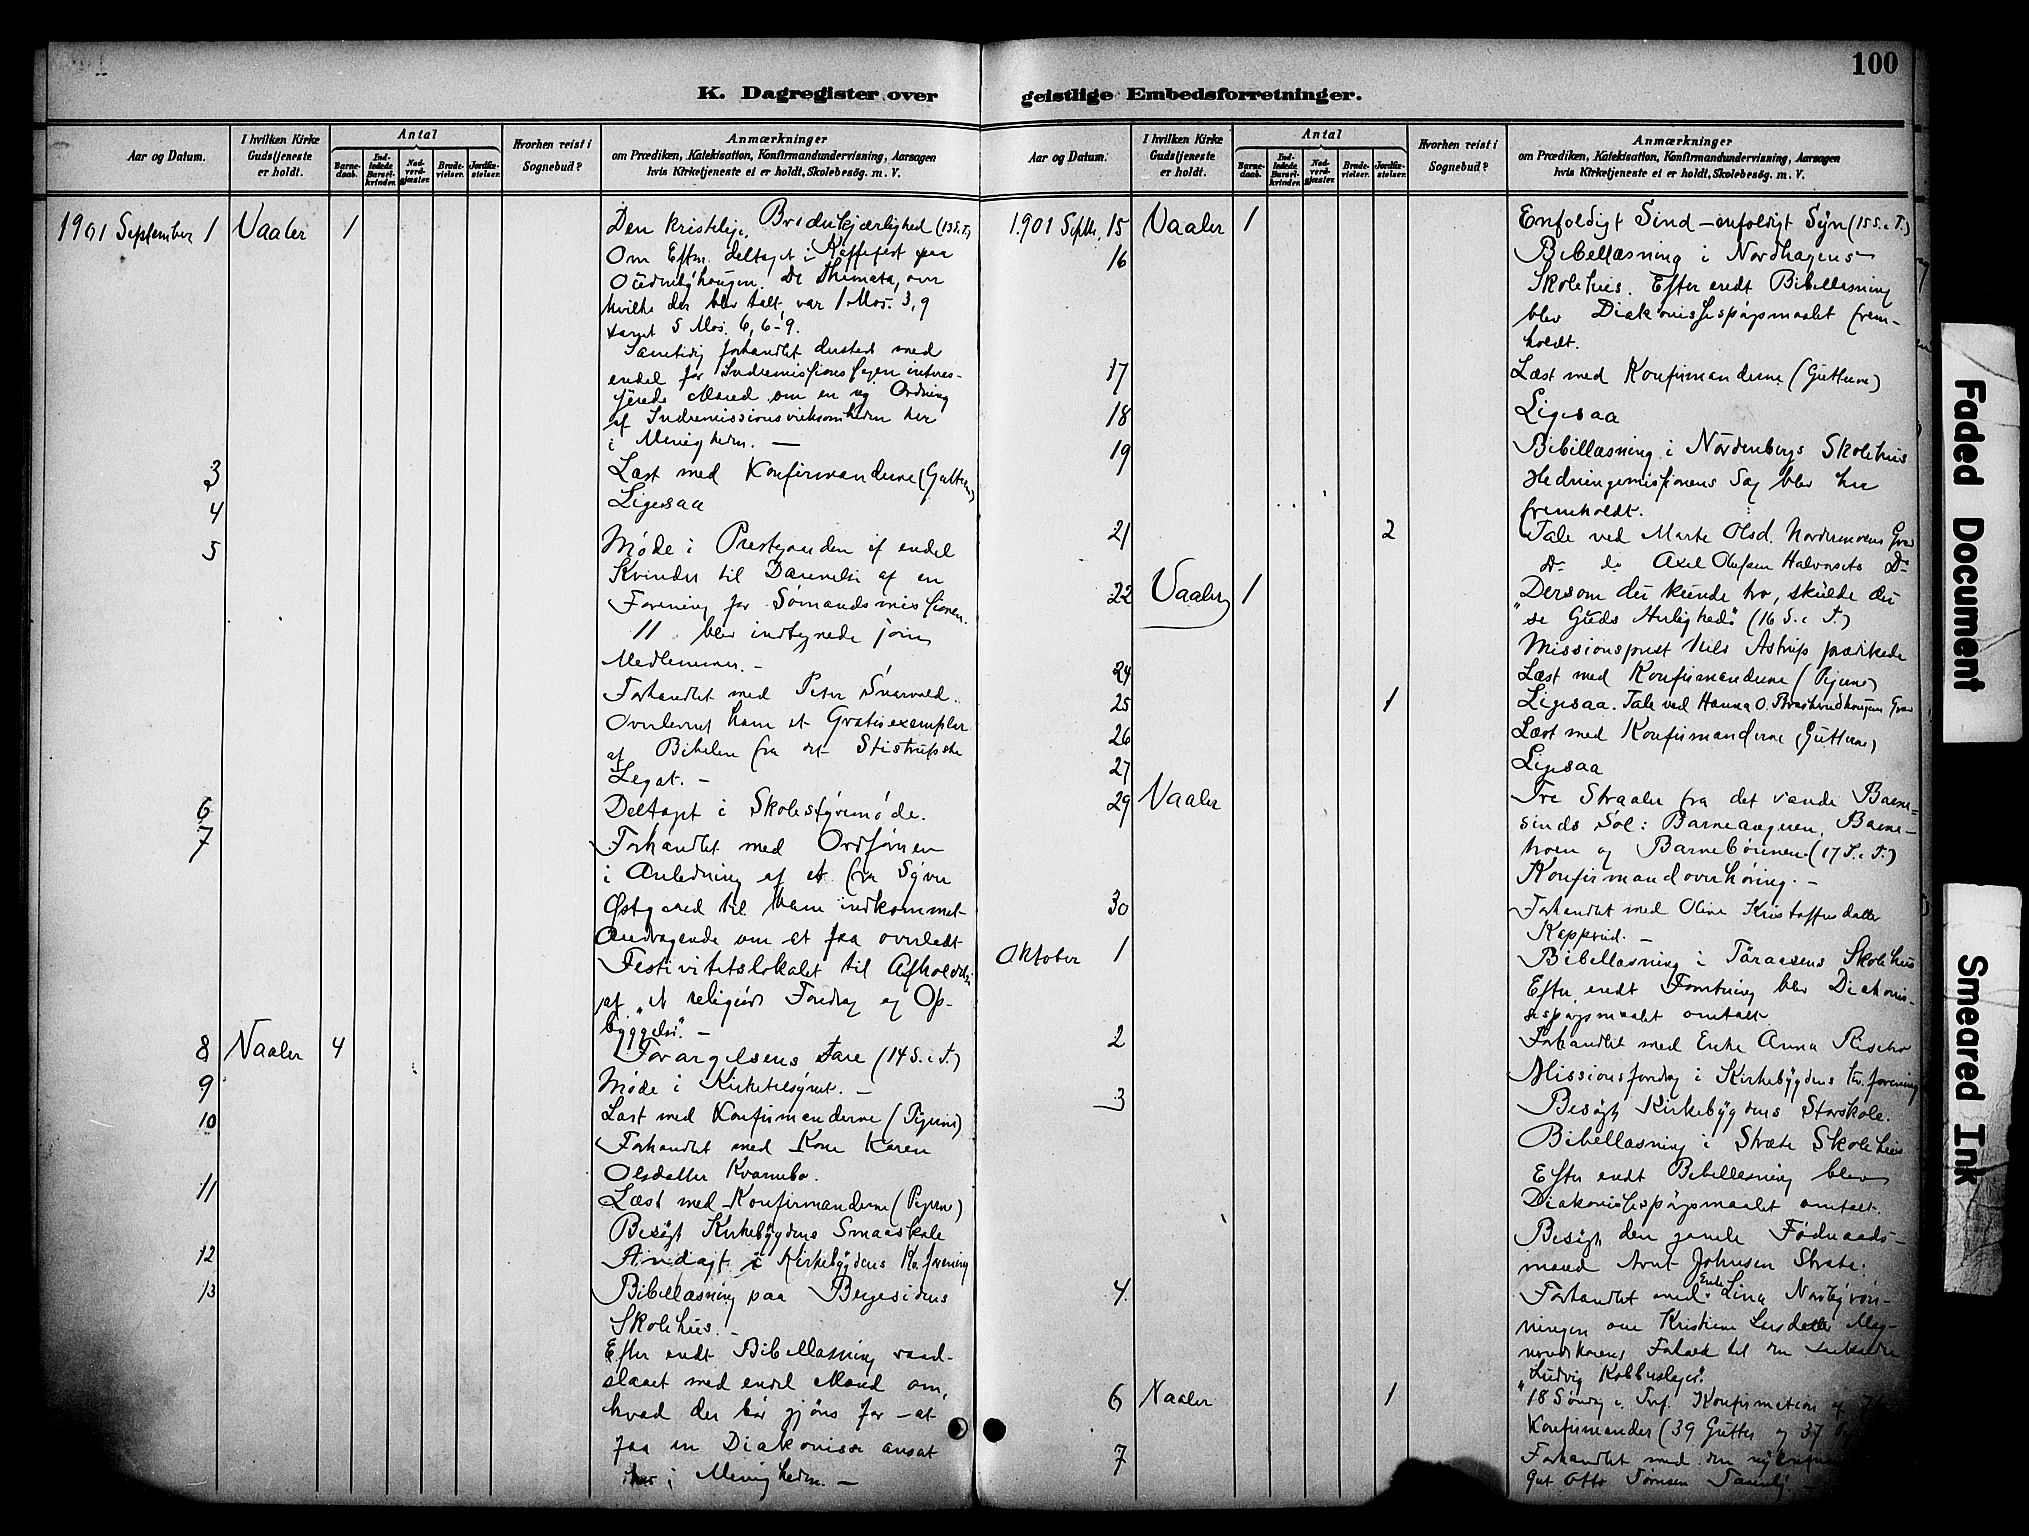 100
K. Dagregister over geistlige Embedsforretninger.
Aar og Datum.
I hvilken Kirke Gudstjeneste er holdt.
Antal
Barnedaab.
Indledede Barselkvinder.
Nadverdgjæster.
Brudevielser.
Jordfæstelser.
Hvorhen reist i Sognebud?
Anmærkninger
om Prædiken, Katekisation, Konfirmandundervisning, Aarsagen
hvis Kirketjeneste ei er holdt, Skolebesøg. m. V.
1901 September 1 Vaaler 1
Den kristelige Broderkjærlighed (13 S. e. T.)
Om Eftm. deltaget i Kaffefest paa
De Themata, over
hvilke der blev talt, var 1 Mos. 3,9
samt 5 Mos. 6, 6-9.
Samtidig forhandlet dersteds med
endel for Indremissions Sagen interes-
serede Mænd om en ny Ordning
af Indremissionsvirksomheden her
i Menigheden. —
3 Læst med Konfirmanderne (Gutterne)
4 Ligesaa
5 Møde i Prestegaarden af endel
Kvinder til Dannelse af en
Forening for Sømandsmissionen.
11 blev indtegnede som
Medlemmer. —
Forhandlet med Peter
Overleveret ham et Gratisexemplar
af Bibelen fra det Stistrupske
Legat. —
6 Deltaget i Skolestyremøde.
7 Forhandlet med Ordføreren
i Anledning af et fra Syver
Østgaard til ham indkommet
Andragende om at faa overladt
Festivitetslokalet til Afholdelse
af "et religiøst Foredrag og Op-
byggelse". —
8 Vaaler 4 Forargelsens Fare (14 S. e. T.)
9 Møde i Kirketilsynet. —
10 Læst med Konfirmanderne (Pigerne)
Forhandlet med Kone Karen
Olsdatter Kvarnebo.
11 Læst med Konfirmanderne (Pigerne)
Besøgt Kirkebygdens Smaaskole
12 Andagt i Kirkebygdens Kv. forening
13 Bibellæsning paa Bergesidens
Skolehus. —
Efter endt Bibellæsning raad-
slaaet med endel Mænd om,
hvad der bør gjøres for at
faa en Diakonisse ansat
her i Menigheden. —
Aar og Datum.
I hvilken Kirke Gudstjeneste er holdt.
Antal
Barnedaab.
Indledede Barselkvinder.
Nadverdgjæster.
Brudevielser.
Jordfæstelser.
Hvorhen reist i Sognebud?
Anmærkninger
om Prædiken, Katekisation, Konfirmandundervisning, Aarsagen
hvis Kirketjeneste ei er holdt, Skolebesøg. m. V.
1901 Septbr. 15 Vaaler 1 Enfoldigt Sind – enfoldigt Syn (15 S. e. T.)
16 Bibellæsning i Nordhagens
Skolehus. Efter endt Bibellæsning
blev Diakonissespørgsmaalet frem-
holdt.
17 Læst med Konfirmanderne (Gutterne)
18 Ligesaa
19 Bibellæsning i Nordenbergs Skolehus
Hedningemissionens Sag blev her
fremholdt.
21 2 Tale ved Marte Olsd. Nordmoens Grav
Do do Axel Olufsen Halvorsets Do
22 Vaaler 1 Dersom du kunde tro, skulde du
"se Guds Herlighed" (16 S. e. T.)
Missionsprest Nils Astrup prædikede
24 Læst med Konfirmanderne (Pigerne)
25 1 Ligesaa. Tale ved Hanna O. Grav
26 Læst med Konfirmanderne (Gutterne)
27 Ligesaa
29 Vaaler Tre Straaler fra det sande Barne-
sinds Sol: Barneangeren, Barne-
troen og Barnebønnen (17 S. e. T.)
Konfirmandoverhøring. —
30 Forhandlet med Oline Kristoffersdatter
Kapprud. —
Oktober 1 Bibellæsning i Taraasens Skolehus
Efter endt Forretning blev Diakonis-
sespørgsmaalet omtalt
2 Forhandlet med Enke Anna
Missionsforedrag i Kirkebygdens kv. forening
3 Besøgt Kirkebygdens Storskole.
Bibellæsning i Stræte Skolehus
Efter endt Bibellæsning blev
Diakonissespørgsmaalet omtalt.
Besøgt den gamle Føderaads-
mand Arnt Johnsen Stræte.
4 Forhandlet med Enke Lina
om Kristiane Larsdatter Mag-
til den
"Ludvig Kobberslager".
6 Vaaler 1 18 Søndag e. Tref. Konfirmation af
Konfirmander (39 Gutter og 37
7 Forhandlet med den
Gut Otto Tørresen
Faded Document
Smeared Ink